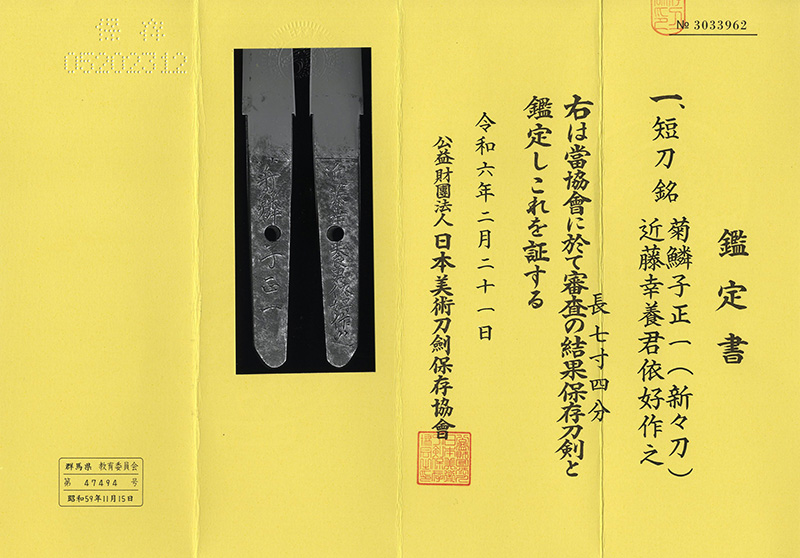 № 3033962
鑑定書
一、短刀 銘 菊鱗子正一(新々刀)
近藤幸養君依好作之
長 七寸四分
右は當協會に於て審査の結果保存刀剣と
鑑定しこれを証する
令和六年二月二十一日
公益財團法人 日本美術刀劍保存協會
保存
05202312
群馬県 教育委員会
第 47494 号
昭和59年11月15日